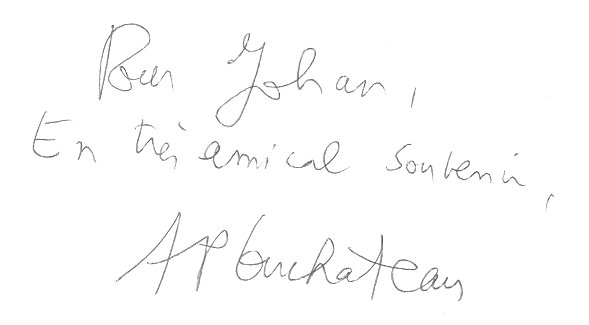 Pour Johan,
En très amical souvenir,